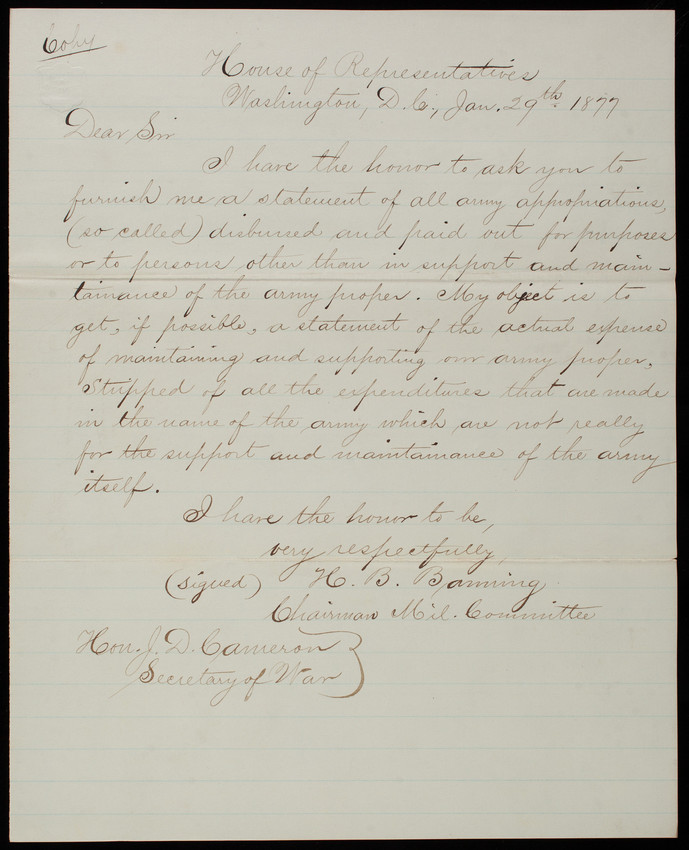 Copy
House of Representatives
Washington, D.C., Jan. 29th 1877
Dear Sir
I have the honor to ask you to
furnish me a statement of all army appropriations,
(so called) disbursed and paid out for purposes
or to persons other than in support and main-
tainance of the army proper. My object is to
get, if possible, a statement of the actual expense
of maintaining and supporting our army proper,
Stripped of all the expenditures that are made
in the name of the army which are not really
for the support and maintainance of the army
itself.
I have the honor to be,
very respectfully,
(signed) H. B. Banning
Chairman Mil. Committee
Hon. J. D. Cameron
Secretary of War